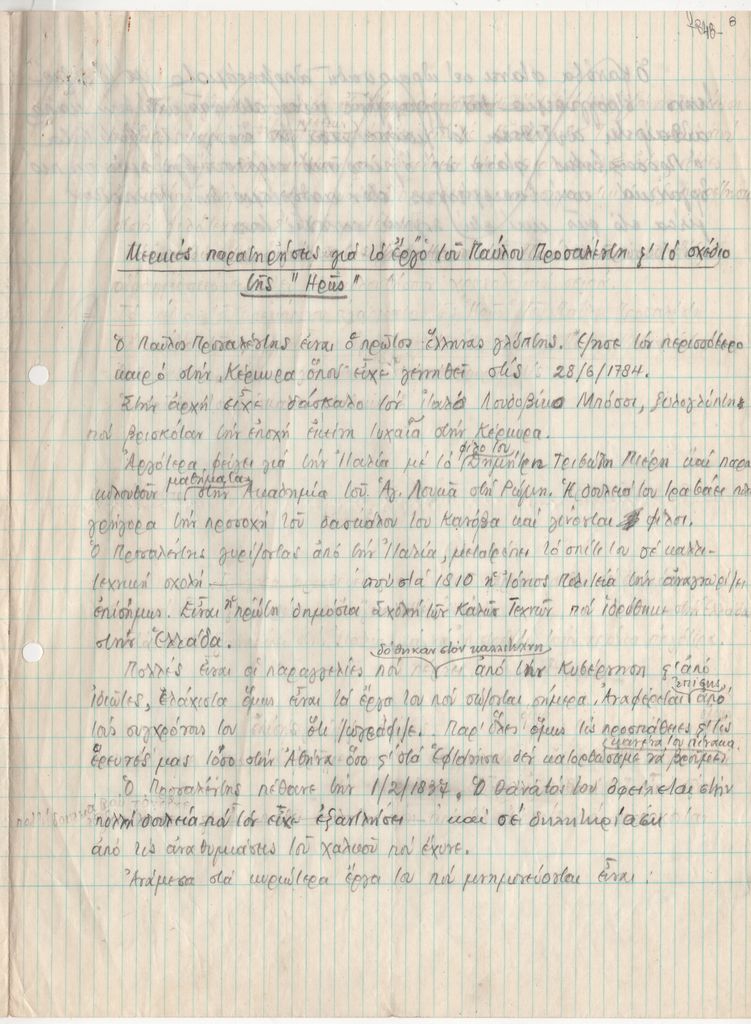 Μερικές παρατηρήσεις γιά τό ἔργο τοῦ Παύλου Προσαλέντη κ' τό σχέδιο
τῆς "Ηρας"
Ὁ Παῦλος Προσαλέντης εἶναι ὁ πρῶτος Ἕλληνας γλύπτης. Ἔζησε τόν περισσότερο
καιρό στήν Κέρκυρα ὅπου εἶχε γεννηθεῖ στίς 28/6/1784.
Στήν ἀρχή εἶχε δάσκαλο τόν Ἰταλό Λουδοβίκο Μπόσσι, ξυλογλύπτη
πού βρισκόταν τήν ἐποχή ἐκείνη τυχαῖα στήν Κέρκυρα.
Ἀργότερα φεύγει γιά τήν Ἰταλία μέ τό φίλο του Δημήτρη Τριβώλη Πιέρη καί παρα
κολουθοῦν μαθήματα στήν Ἀκαδημία τοῦ Ἁγ. Λουκᾶ στή Ρώμη. Ἡ δουλειά του τραβάει
γρήγορα τήν προσοχή τοῦ δασκάλου του Κανόβα καί γίνονται φίλοι.
Ὁ Προσαλέντης γυρίζοντας ἀπό τήν Ἰταλία, μετατρέπει τό σπίτι του σέ καλλι-
τεχνική σχολή στά 1810 ἡ Ἰόνιος Πολιτεία τήν ἀναγνωρίζει
ἐπίσημως. Εἶναι ἡ πρώτη δημόσια σχολή τῶν Καλῶν Τεχνῶν πού ἱδρύθηκε
στήν Ἑλλάδα.
Πολλές εἶναι οἱ παραγγελίες πού δόθηκαν στόν καλλιτέχνη ἀπό τήν Κυβέρνηση κ' ἀπό
ἰδιῶτες, ἐλάχιστα ὅμως εἶναι τά ἔργα του πού σώζονται σήμερα. Ἀναφέρεται ἐπίσης ἀπό
τούς συγχρόνους του ὅτι ζωγράφιζε. Παρ' ὅλες ὅμως τίς προσπάθειες κ' τίς
ἔρευνές μας τόσο στήν Ἀθήνα ὅσο κ' στά Ἑφτάνησα δέν κατορθώσαμε νά βροῦμε κανένα του πίνακα.
Ὁ Προσαλέντης πέθανε τήν 1/2/1837. Ὁ θάνατός του ὀφείλεται στήν
πολλή δουλειά πού τόν εἶχε ἐξαντλήσει καί σέ δηλητηρίαση
ἀπό τίς ἀναθυμιάσεις τοῦ χαλκοῦ πού ἔχυνε.
Ἀνάμεσα στά κυριώτερα ἔργα του πού μνημονεύονται εἶναι: